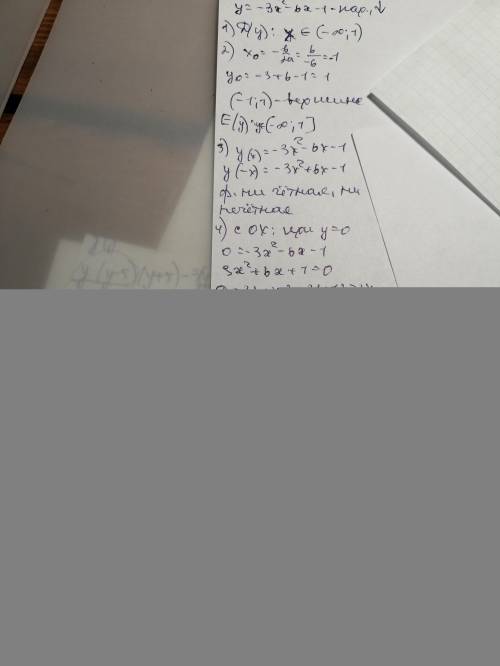 y = -3x² - 6x - 1 - пар., ↓
1) D(y): x ∈ (-∞; 1)
2) x₀ = -b/2a = 6/-6 = -1
y₀ = -3+6-1 = 1
(-1; 1) - вершина
E(y): y ∈ (-∞; 1]
3) y(x) = -3x² - 6x - 1
y(-x) = -3x² + 6x - 1
ф. ни чётная, ни
нечётная
4) с OX: при y=0
0 = -3x² - 6x - 1
3x² + 6x + 1 = 0